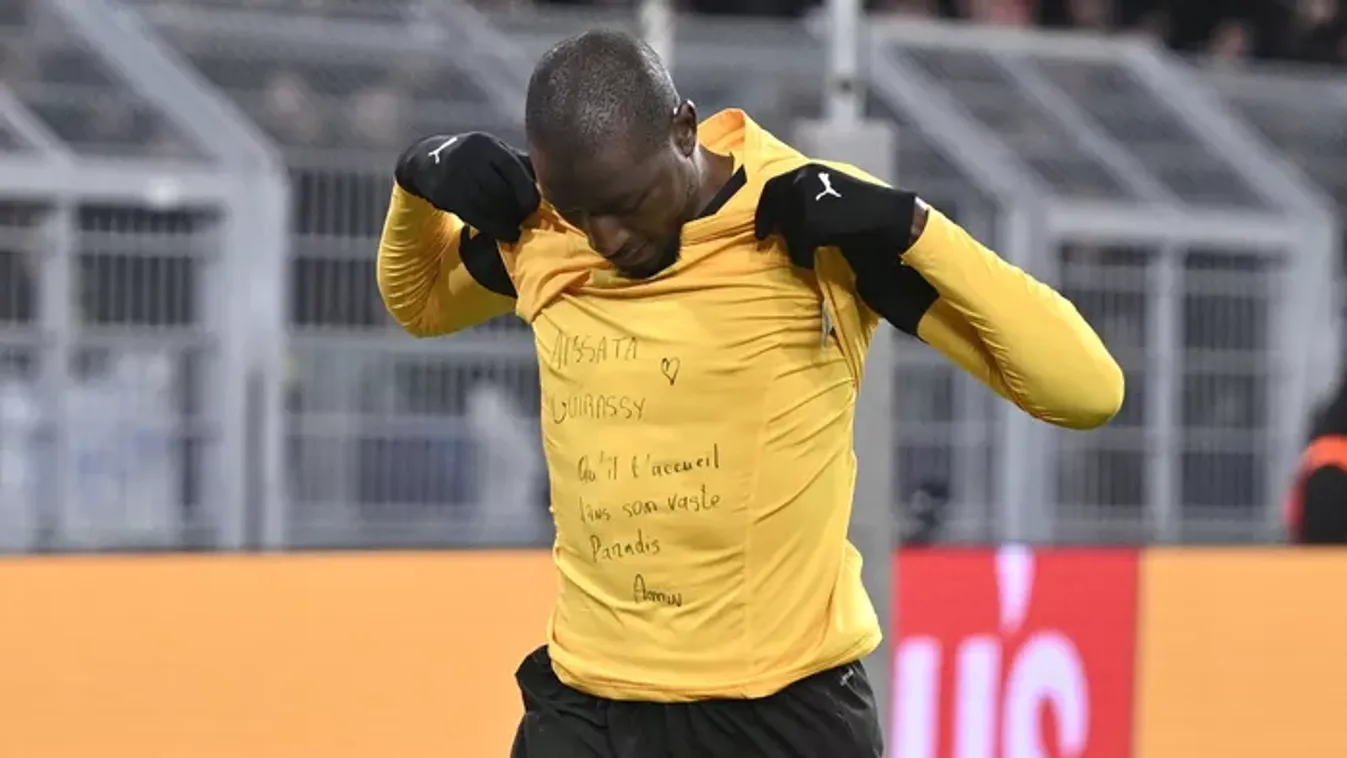 AISSATA
GUIRASSY
Qu'il t'accueil
dans son vaste
Paradis
Amin
us